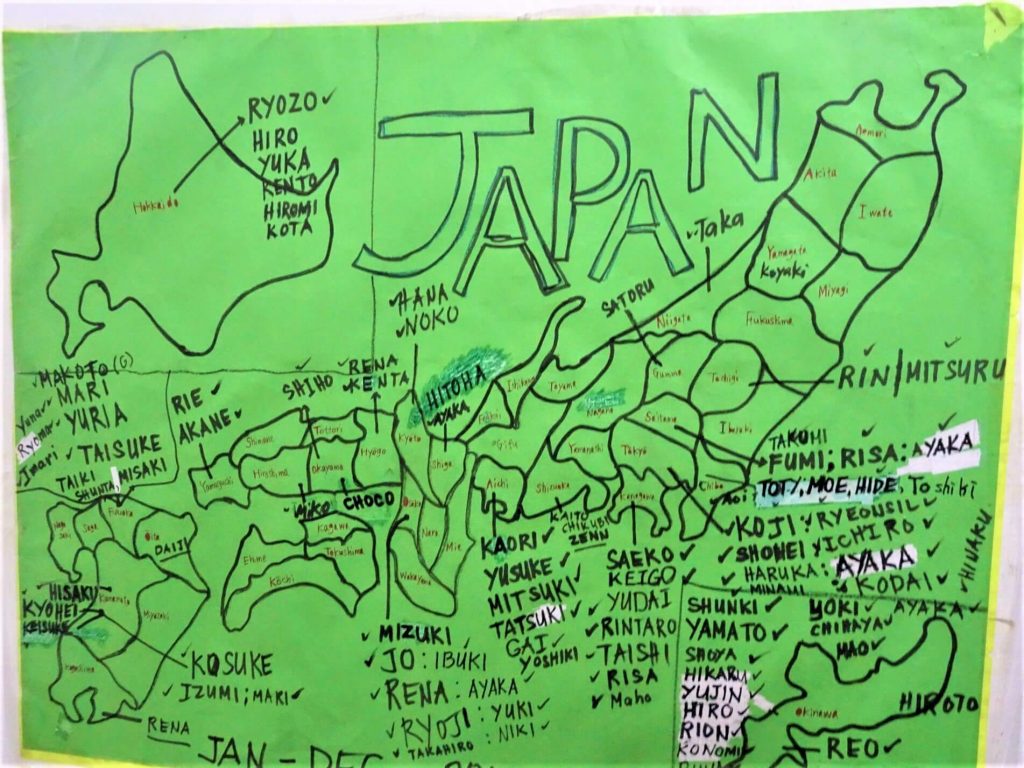 JAPAN
Hokkaido
RYOZO ✓
HIRO
YUKA
KENTO
HIROMI
KOTA
✓ HANA
✓ NOKO
✓ Taka
SATORU
Aomori
Akita
Iwate
Yamagata
Koyuki
Miyagi
Fukushima
Niigata
Gunma
Tochigi
RIN/MITSURU
Ibaraki
Saitama
Tokyo
Chiba
Kanagawa
Yamanashi
Nagano
Toyama
Ishikawa
Fukui
Gifu
Shizuoka
Aichi
HITOHA
AYAKA
Kyoto
Shiga
Osaka
Nara
Mie
Wakayama
✓ MAKOTO (G)
MARI
Yuna ✓
YURIA
Ryoma ✓
Imari ✓
TAISUKE
TAIKI
SHUNTA, MISAKI
RIE ✓
AKANE ✓
SHIHO
✓ RENA
✓ KENTA
Shimane
Tottori
Hyogo
Hiroshima
Okayama
Yamaguchi
Aiko
CHOCO
Kagawa
Tokushima
Ehime
Kochi
Saga
Fukuoka
Oita
DAIJI
Kumamoto
Miyazaki
Kagoshima
HISAKI
KYOHEI
KEISUKE
KOSUKE
✓ IZUMI; MARI ✓
RENA
MIZUKI
✓ JO: IBUKI
RENA: AYAKA ✓
✓ RYOJI: YUKI ✓
✓ TAKAHIRO: NIKI ✓
KAORI ✓
YUSUKE ✓
MITSUKI ✓
TATSUKI ✓
GAI ✓
YOSHIKI
KAITO
CHIKUBI
ZENN
SAEKO ✓
KEIGO ✓
✓ YUDAI
✓ RINTARO
✓ TAISHI
✓ RISA
✓ Maho
TAKUMI ✓
FUMI; RISA; AYAKA
Aoi
TOTY, MOE, HIDE, Toshiki
KOJI; RYEONSIL ✓
SHOHEI ✓ ICHIRO ✓
HARUKA: AYAKA ✓
MINAMI
KODAI ✓
✓ HINAKU
SHUNKI ✓
YAMATO ✓
SHOYA ✓
HIKARU ✓
YUJIN ✓
HIRO ✓
RION ✓
KONOMI ✓
YOKI ✓ AYAKA ✓
CHIHAYA ✓
NAO ✓
HIROTO
Okinawa
REO ✓
JAN - DEC